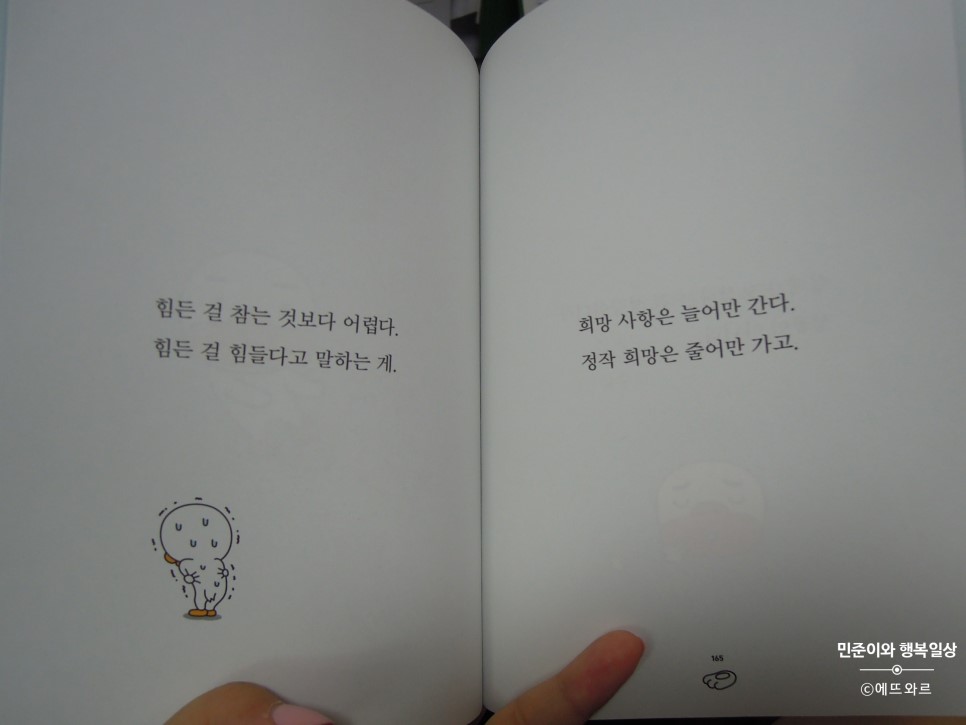 힘든 걸 참는 것보다 어렵다.
힘든 걸 힘들다고 말하는 게.
희망 사항은 늘어만 간다.
정작 희망은 줄어만 가고.
165
민준이와 행복일상
©에뜨와르